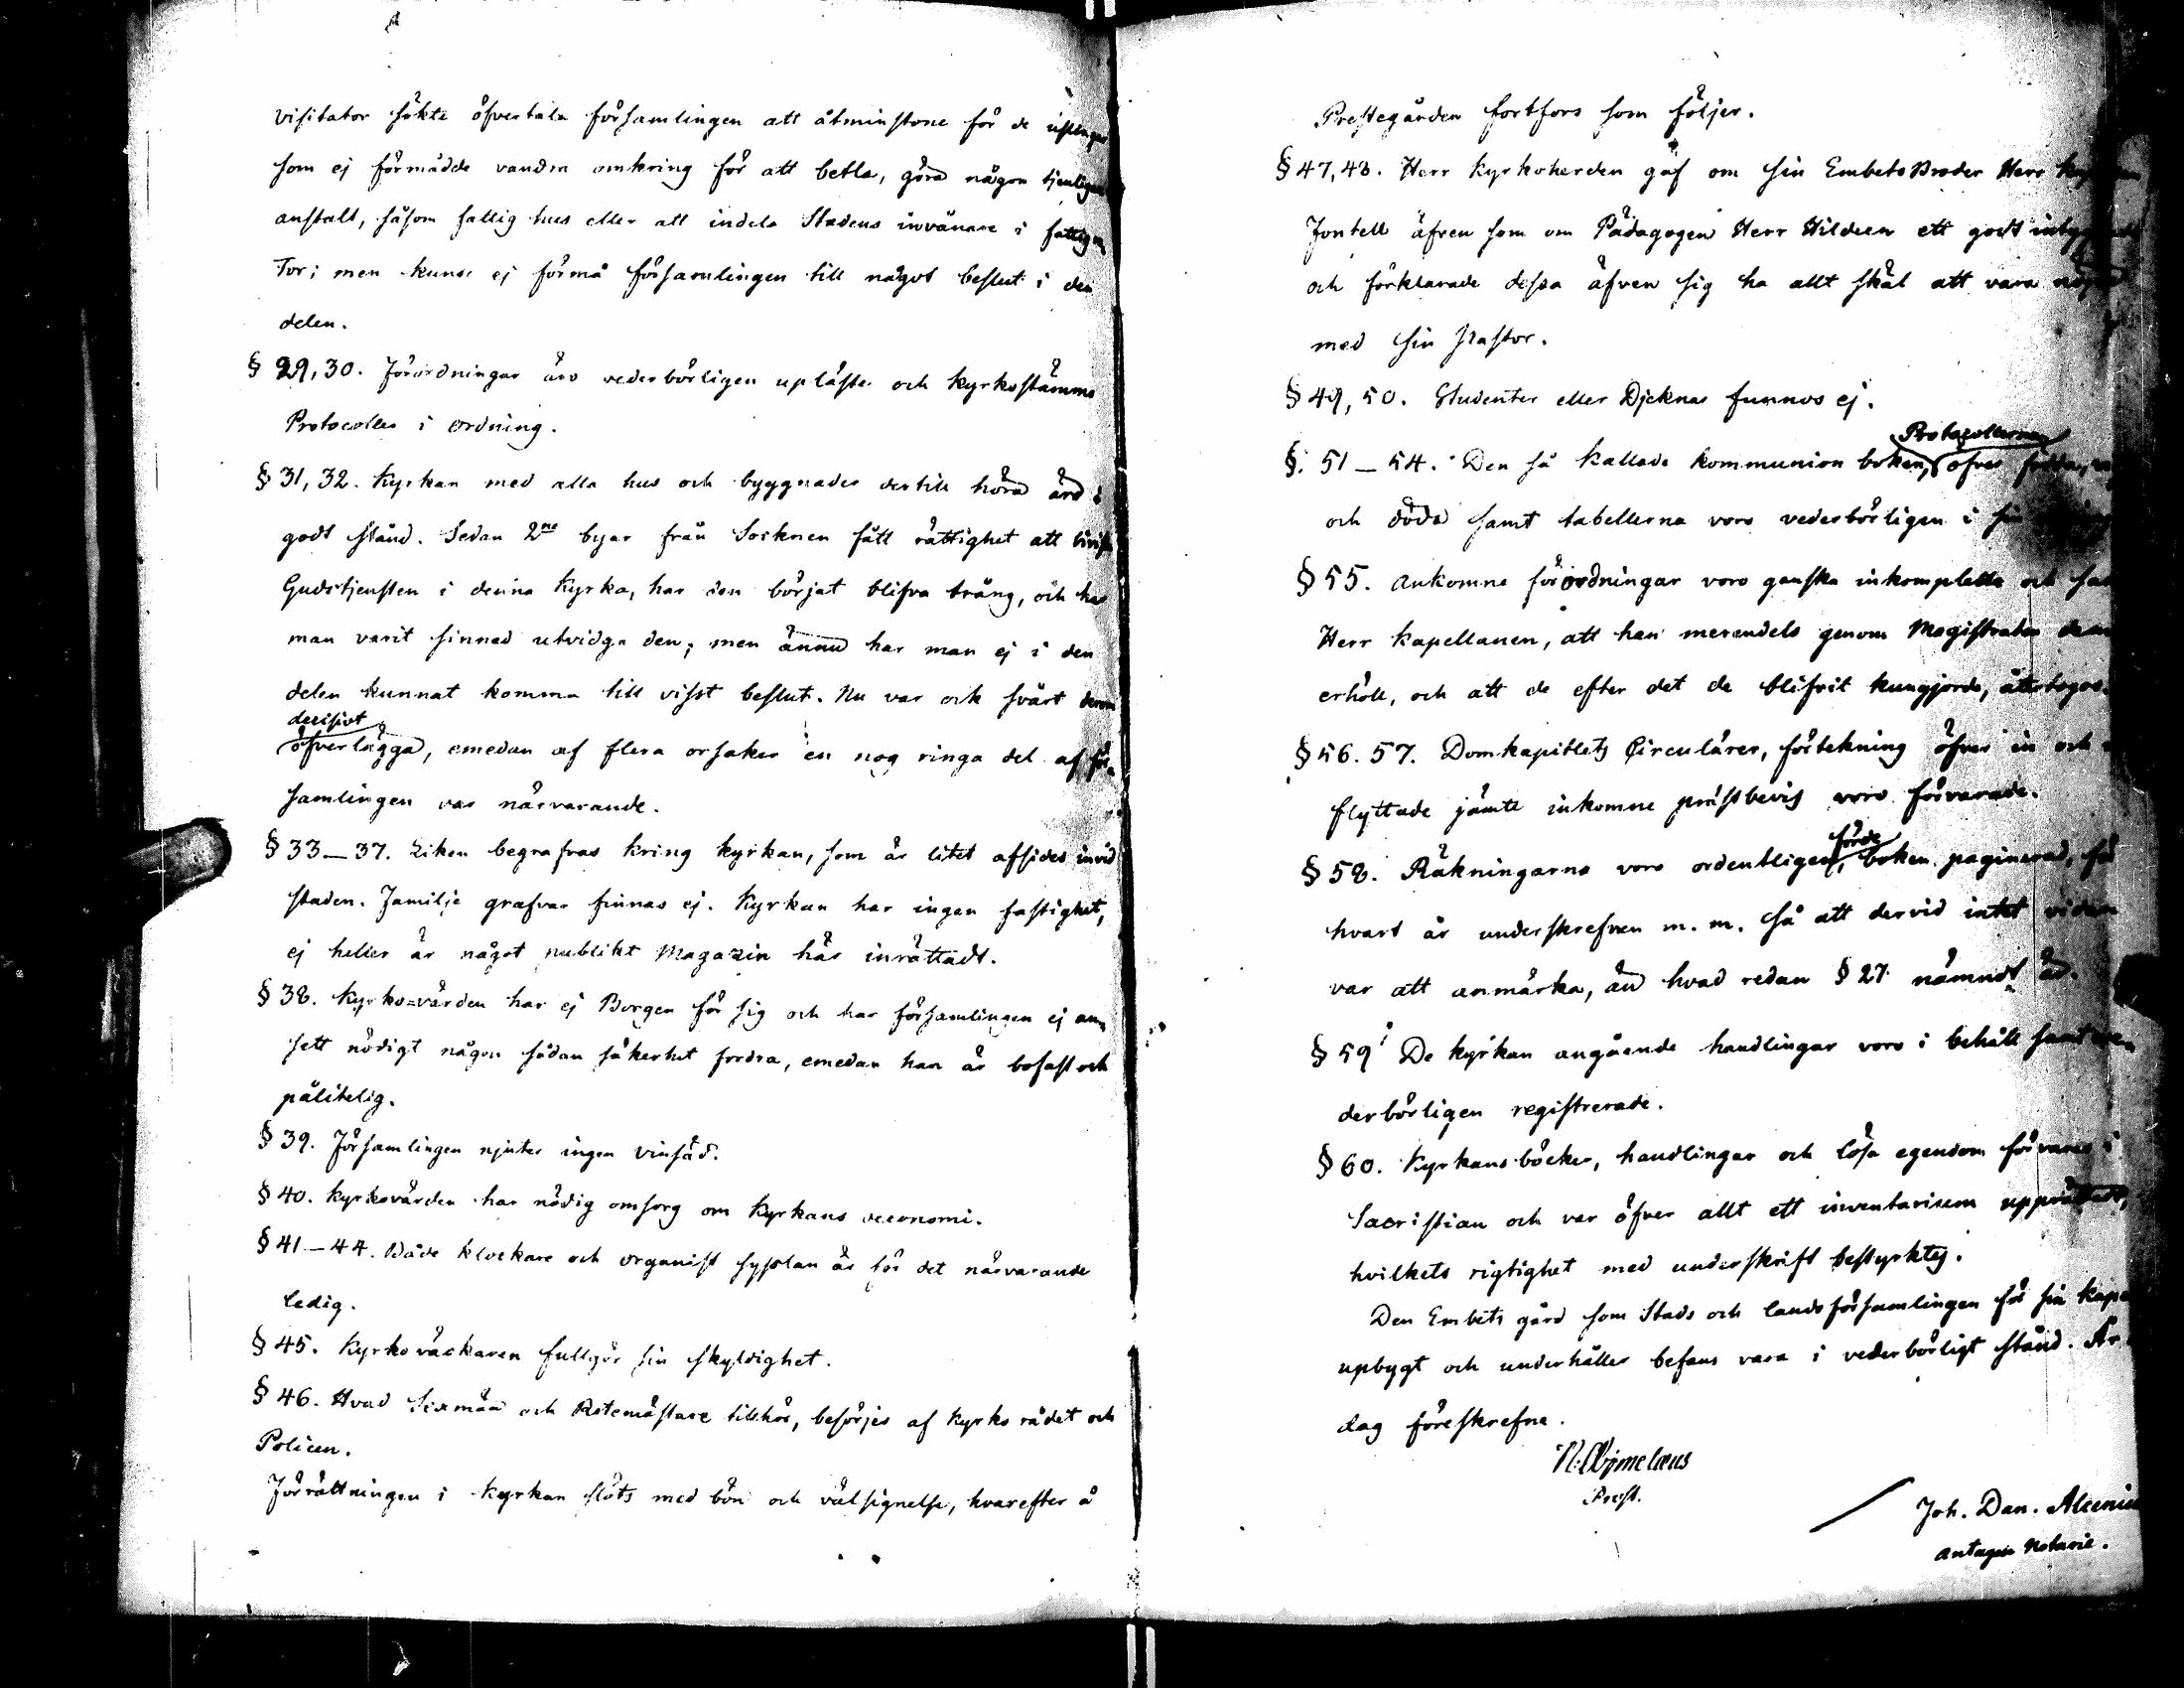 visitator sökte öfvertala församlingen att åtminstone för de
som ej förmådde vandra omkring för att betla, göra någon tjenligare
anstalt, såsom fattig hus eller att indela Stadens invånare i fattig
Tor; men kunde ej förmå församlingen till något beslut i den
delen.
§ 29, 30. Förordningar äro vederbörligen uplästa och kyrkostämmo
Protocoller i ordning.
§ 31, 32. Kyrkan med alla hus och byggnader dertill höra äro i
godt stånd. Sedan 2ne byar från Socknen fått rättighet att bivista
Gudstjensten i denna Kyrka, har den börjat blifva trång, och har
man varit sinnad utvidga den; men ännu har man ej i den
delen kunnat komma till visst beslut. Nu var ock svårt derom
decisivt
öfverlägga, emedan af flera orsaker en nog ringa del af för„
samlingen var närvarande.
§ 33_37. Liken begrafvas kring kyrkan, som är litet afsides invid
staden. Familje grafvar finnas ej. Kyrkan har ingen fastighet,
ej heller är något publikt Magazin här inrättadt.
§ 38. Kyrko=värden har ej Borgen för sig och har församlingen ej an„
sett nödigt någon sådan säkerhet fordra, emedan han är bofast och
pålitelig.
§ 39. Församlingen njuter ingen vinsäd.
§ 40. Kyrkovärden har nödig omsorg om Kyrkans oeconomi.
§ 41_44. Både klockare och organist sysslan är för det närvarande
ledig.
§ 45. Kyrkoväckaren fullgör sin skyldighet.
§ 46. Hvad Sexmän och Rotemästare tillhör, besörjes af Kyrko rådet och
Policen.
Förrättningen i Kyrkan slöts med bön och välsignelse, hvarefter å
Prestegården fortfors som följer.
§ 47, 48. Herr Kyrkoherden gaf om sin Embets Broder Herr
Fontell äfven som om Pädagogen Herr Hildeen ett godt
och förklarade dessa äfven sig ha allt skäl att vara
med sin Pastor.
§ 49, 50. Studenter eller Djeknar funnos ej.
Protocollerna
§. 51_54. Den så kallade kommunion boken, öfver födda,
och döda samt tabellerna voro vederbörligen i
§ 55. Ankomne förordningar voro ganska inkompletta och
Herr Kapellanen, att han merendels genom Magistraten dem
erhöll, och att de efter det de blifvit kungjorde, återtogos.
§ 56. 57. Domkapitlets Circulärer, förtekning öfver in och
flyttade jämte inkomne prästbevis voro förvarade.
förde
§ 58. Räkningarna voro ordentligen, boken paginerad, för
hvart år underskrefven m. m. så att dervid intet vidare
var att anmärka, än hvad redan § 27 nämndt är.
§ 59 De kyrkan angående handlingar voro i behåll samt ve„
derbörligen registrerade.
§ 60. Kyrkans böcker, handlingar och lösa egendom förvaras i
Sacristian och var öfver allt ett inventarium upprättadt,
hvilkets rigtighet med underskrift bestyrktes.
Den Embets gård som Stads och landsförsamlingen för sin
upbygt och underhåller befans vara i vederbörligt stånd. År
dag föreskrefne.
Prost.
Joh. Dan. Alcenius
antagen Notarie.